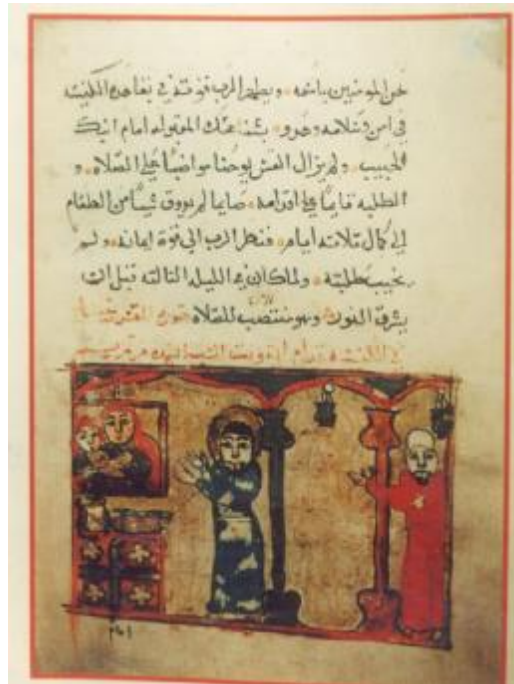 نحن المومنين باسمه ويظهر الرب قوته في بقا هذه الكنيسه
في امن وسلامه وهدو بشفاعتك المقبوله امام ابنك
الحبيب ولم يزال القس يوحنا مواضبًا علي الصلاه و
الطلبه قايمًا علي اقدامه صايما لم يدوق شيًا من الطعام
الي كمال تلاته ايام فنظر الرب الي قوة ايمانه ولم
يخيب طلبته ولما كان في الليله التالته قبل ان
يشرق النور وهو منتصب للصلاه